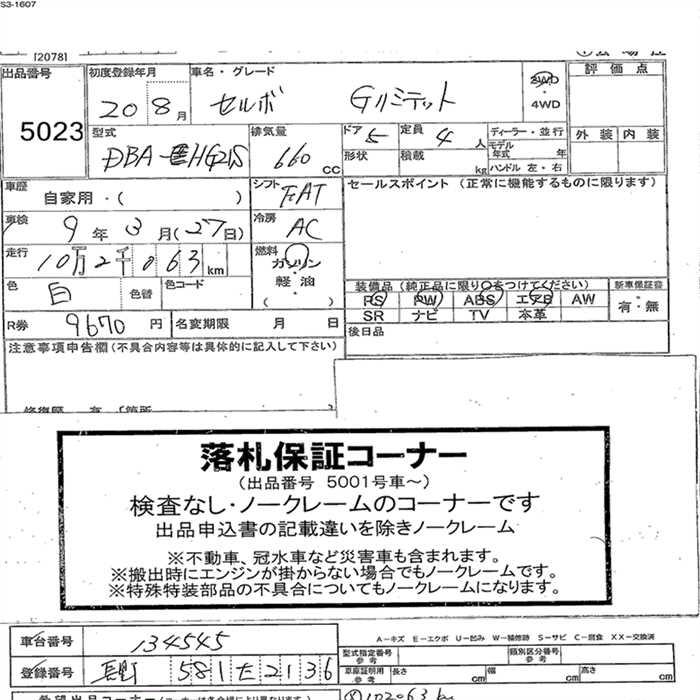 S3-1607
[2078]
出品番号 初度登録年月 車名・グレード 評価点
5023 20 8月 セルボ Gリミテット 2WD・4WD 外装 内装
型式 排気量 ドア 5 定員 4人 ディーラー・並行
DBA-HG21S 660cc 形状 積載 kg モデル年式 年
ハンドル 左・右
車歴 自家用・( ) シフト FAT セールスポイント (正常に機能するものに限ります)
車検 9年3月(27日) 冷房 AC
走行 10万2千063km 燃料 ガソリン・軽油・( )
色 白 色替 色コード 装備品 (純正品に限り○をつけてください) 新車保証書
PS PW ABS エアB AW 有・無
R券 9670円 名変期限 月 日 SR ナビ TV 本革
注意事項申告欄(不具合内容等は具体的に記入して下さい) 後日品
修復歴 有 (箇所
落札保証コーナー
(出品番号 5001号車~)
検査なし・ノークレームのコーナーです
出品申込書の記載違いを除きノークレーム
※不動車、冠水車など災害車も含まれます。
※搬出時にエンジンが掛からない場合でもノークレームです。
※特殊特装部品の不具合についてもノークレームになります。
車台番号 134545 A-キズ E-エクボ U-凹み W-補修跡 S-サビ C-腐食 XX-交換済
型式指定番号 参考 類別区分番号 参考
登録番号 長野 581 せ 2136 車庫証明用 参考 長さ cm 幅 cm 高さ cm
希望出品コーナー 102063km